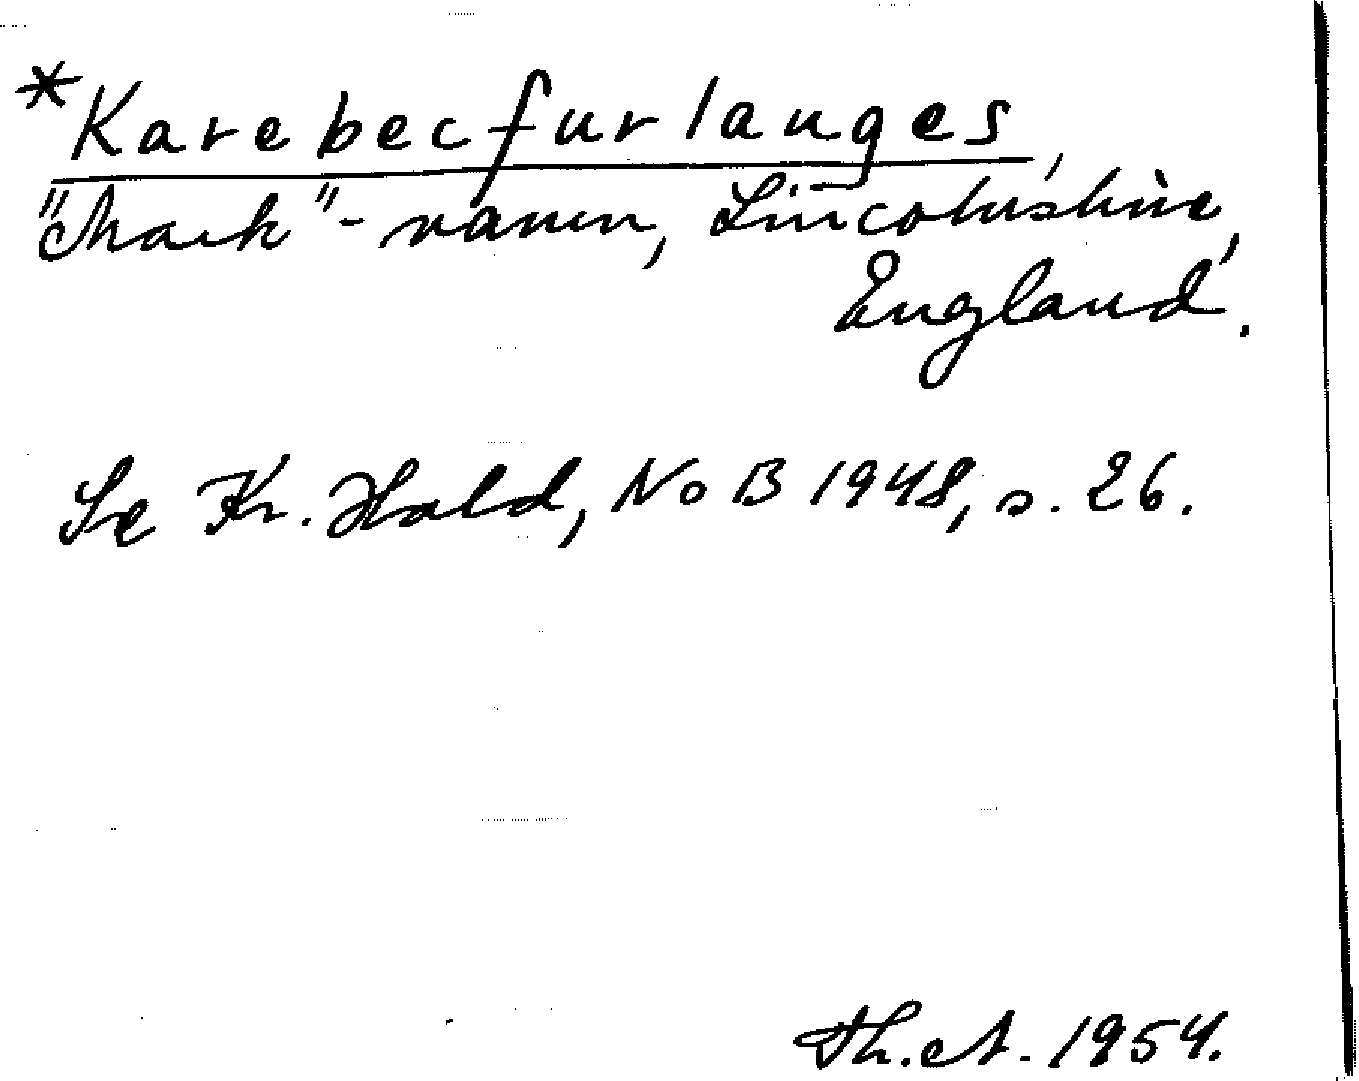 *Karebecfurlanges,
"Mark"-namn, Lincolnshire,
England.
Se Kr. Hald, NoB 1948, s. 26.
Th. A. 1954.